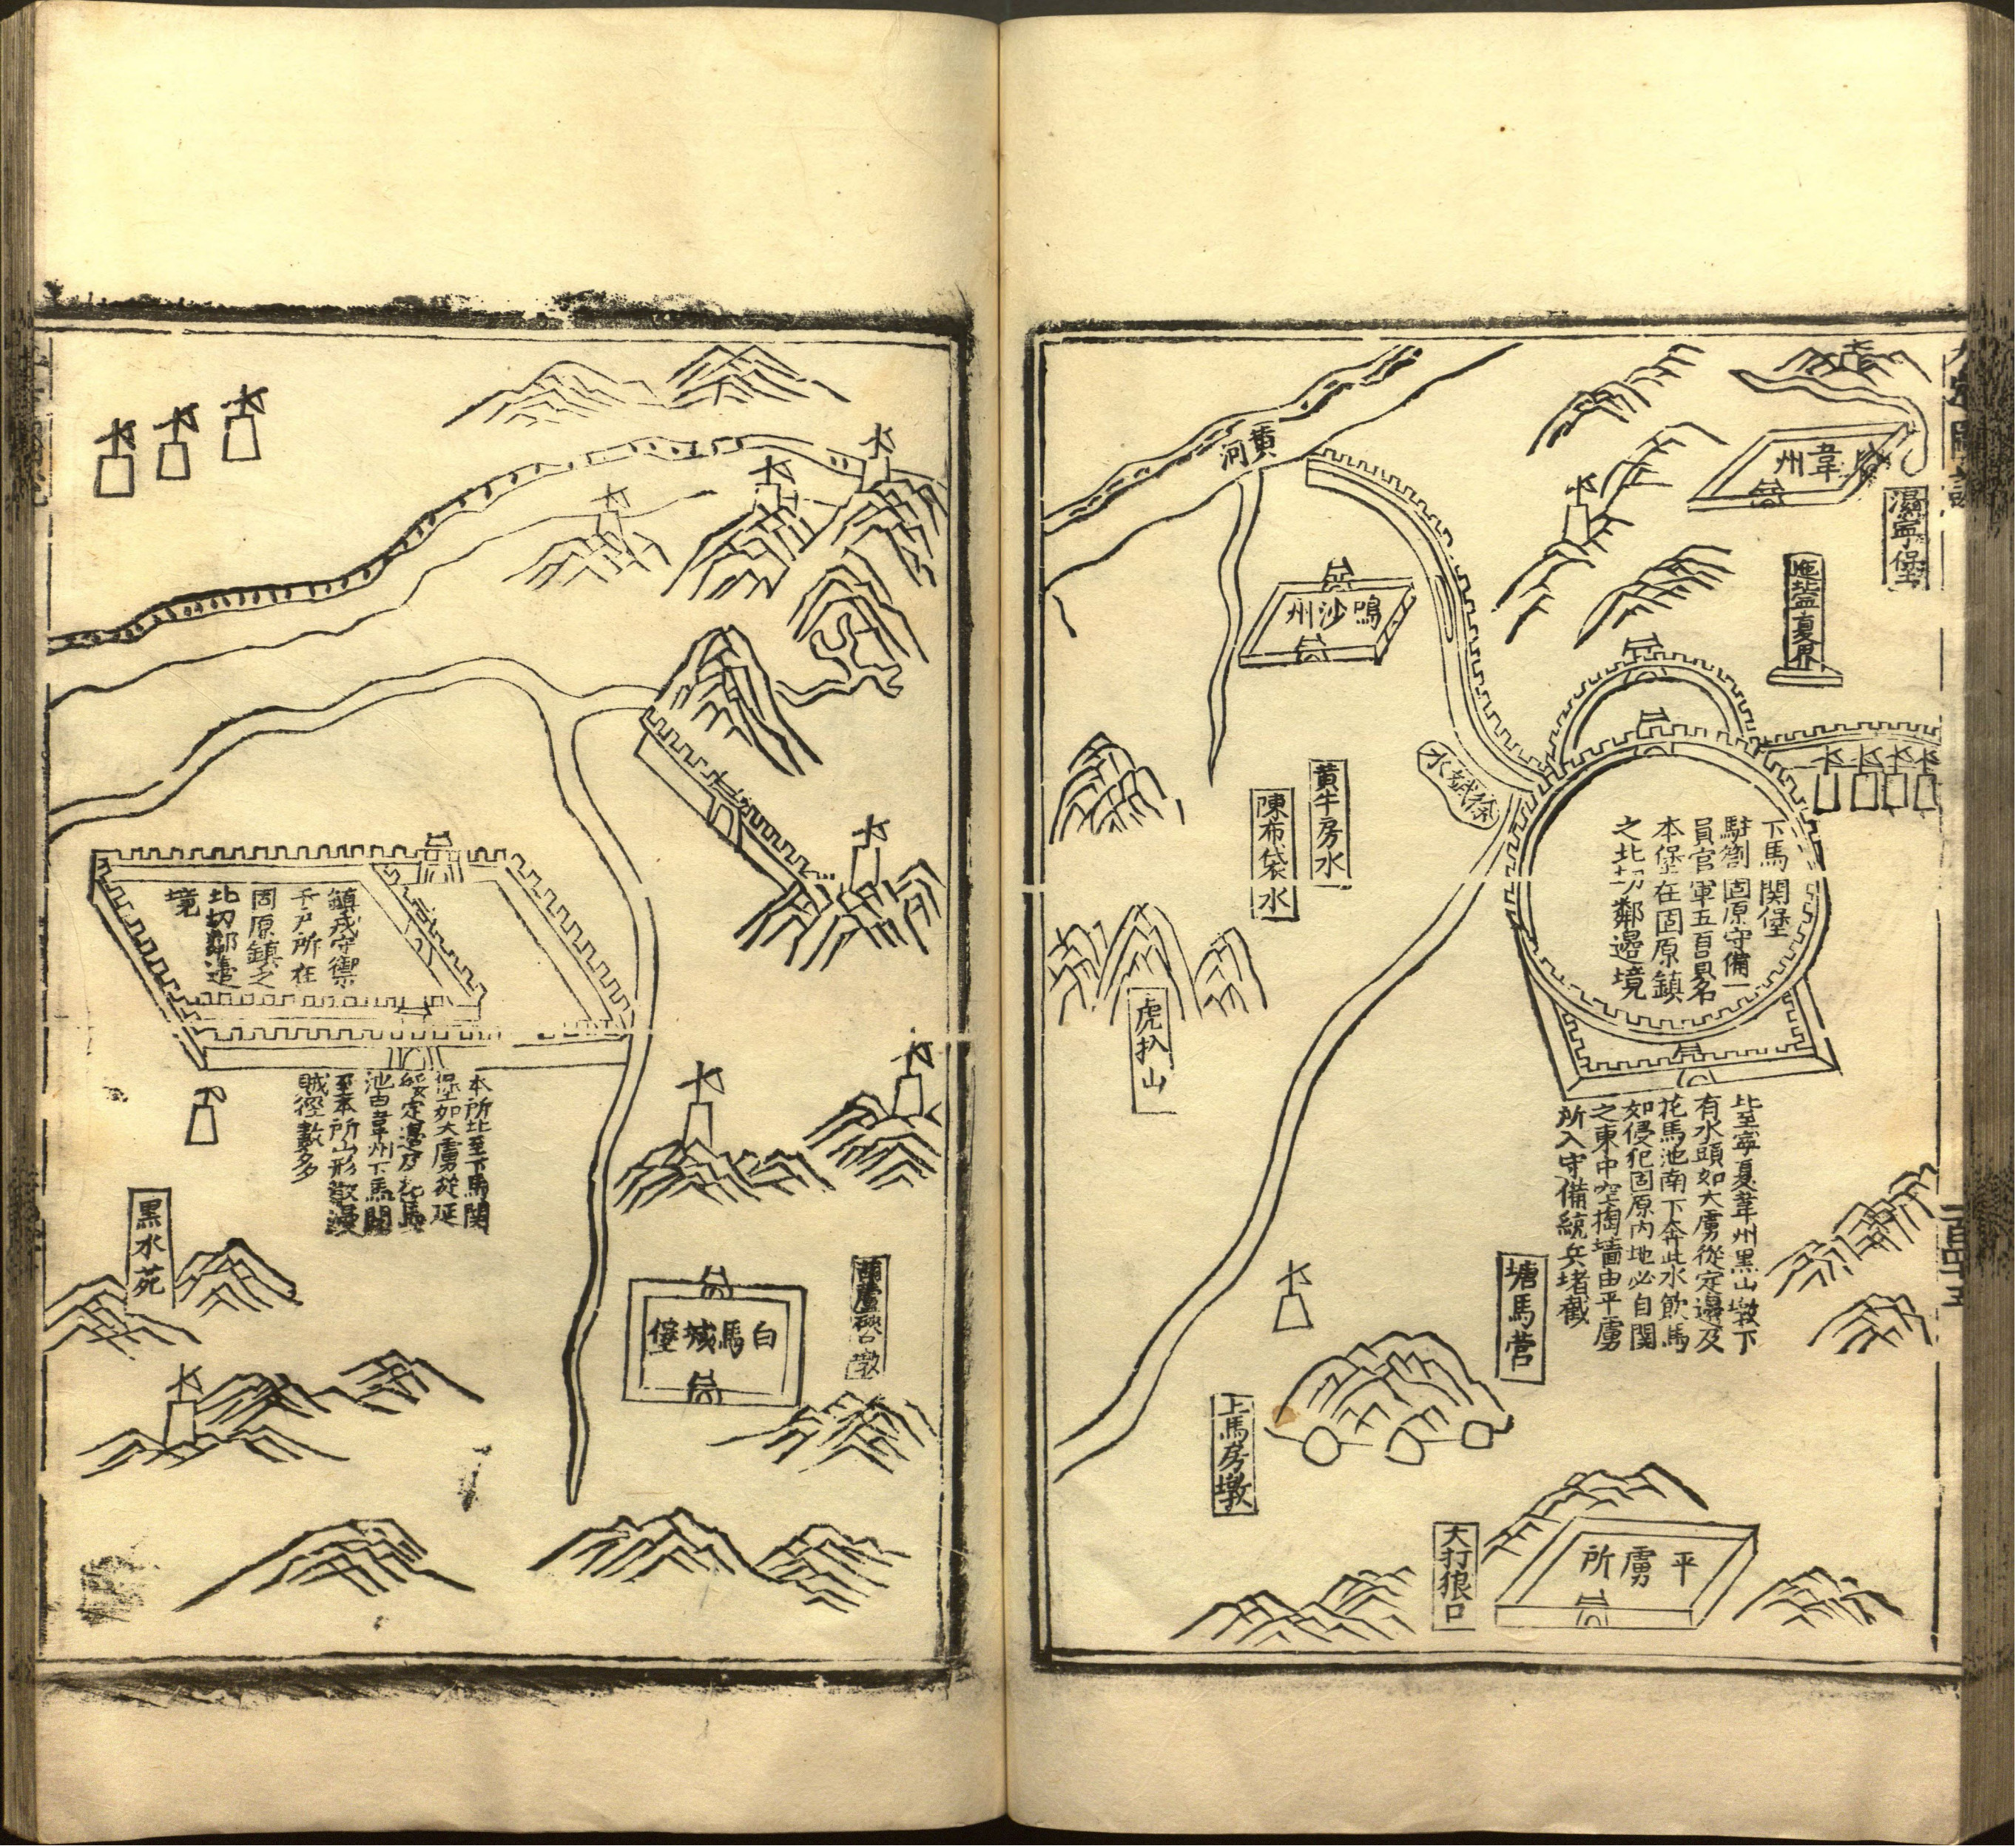 韋州
溫寧堡
迤北寧夏界
黃河
鳴沙州
下馬関堡
駐劄固原守備一
員官軍五百員名
本堡在固原鎮
之北切鄰邊境
北至寧夏韋州黑山墩下
有水頭如大虜從定邊及
花馬池南下奔此水飲馬
如侵犯固原內地必自関
之東中空掏墻由平虜
所入守備統兵堵截
黃牛房水
陳布袋水
虎扒山
塘馬营
上馬房墩
大打狼口
平虜所
二百四十五
鎮戎守禦
千户所在
固原鎮之
北切鄰邊
境
本所北至下馬関
堡如大虜從延
綏定邊及花馬
池由韋州下馬関
至本所山形散漫
賊徑數多
白馬城堡
黑水苑